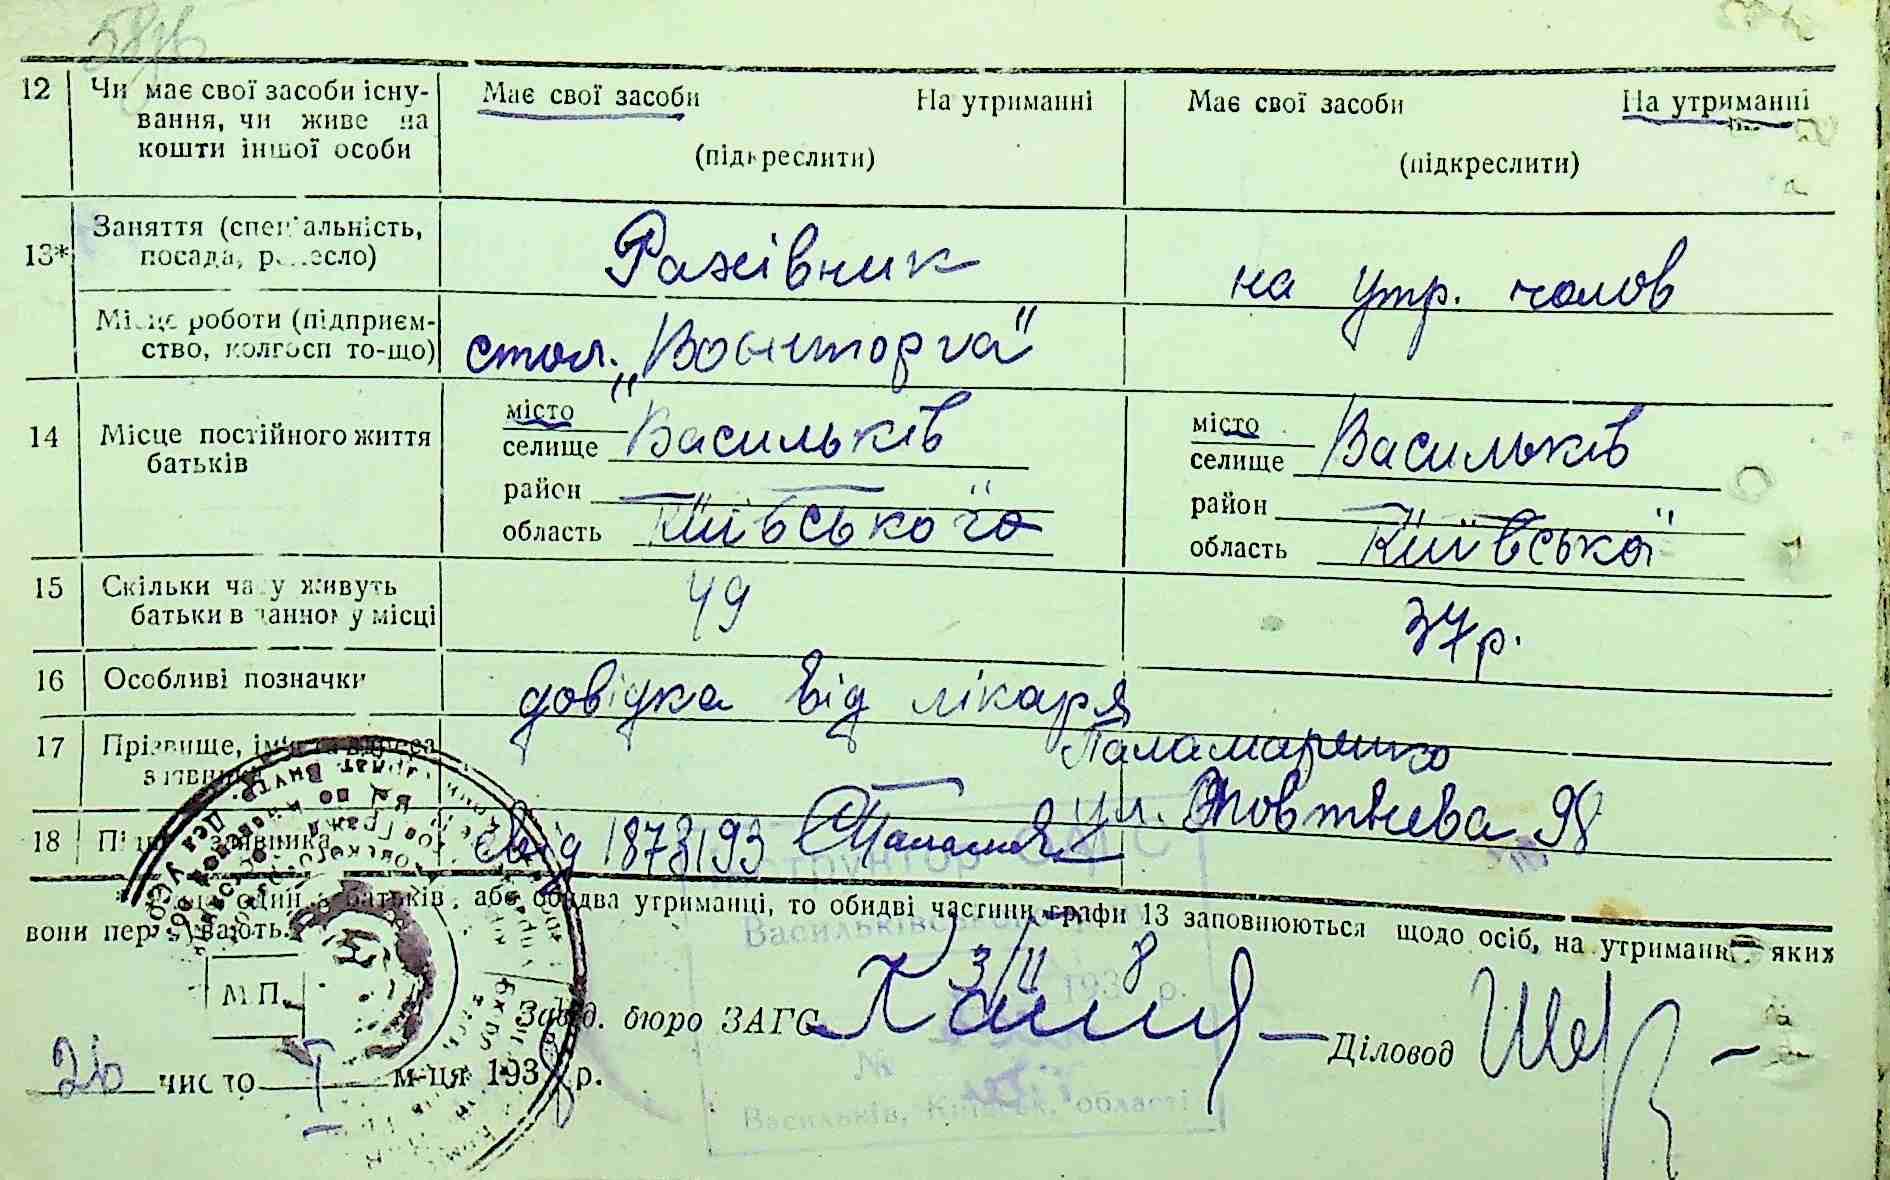 12 Чи має свої засоби існу-
вання, чи живе на
кошти іншої особи
Має свої засоби На утриманні
(підкреслити)
Має свої засоби На утриманні
(підкреслити)
13* Заняття (спеціальність,
посада, ремесло)
Рахівник
на утр. чолов
Місце роботи (підприєм-
ство, колгосп то-що)
стол. „Воєнторга"
14 Місце постійного життя
батьків
місто
селище Васильків
район —
область Київського
місто
селище Васильків
район —
область Київська
15 Скільки часу живуть
батьки в данному місці
49
37 р.
16 Особливі позначки
довідка від лікаря
17 Прізвище, ім'я та адреса
заявника
Паламаренко
ул. Жовтнева 98
18 Підпис заявника
свід 1873193
один з батьків, або обидва утриманці, то обидві частини графи 13 заповнюються щодо осіб, на утриманні яких
вони перебувають.
М.П.
Завід. бюро ЗАГС
3/II 8
Діловод
26 число I м-ця 1938 р.
Інструктор ОАГС
Васильківського
193 р.
№
Васильків, Київськ. області